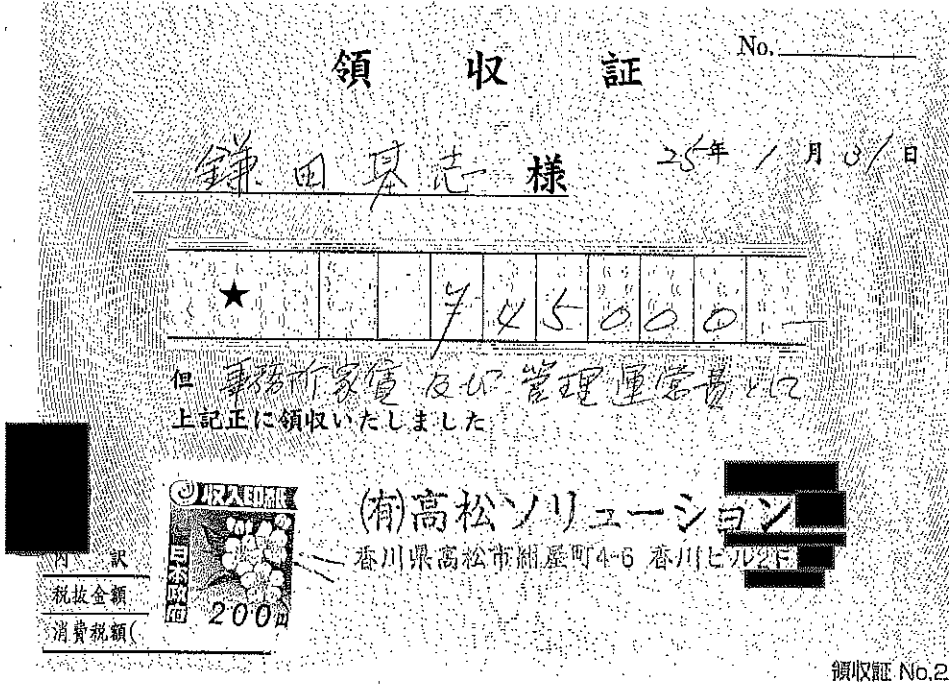 領収証
No.
鎌田基志 様
25年 1月 31日
★ ¥45000.-
但 事務所家賃及び管理運営費として
上記正に領収いたしました
収入印紙
日本政府
200円
(有)高松ソリューション
香川県高松市紺屋町4-6 香川ビル2F
内訳
税抜金額
消費税額(
領収証 No.2